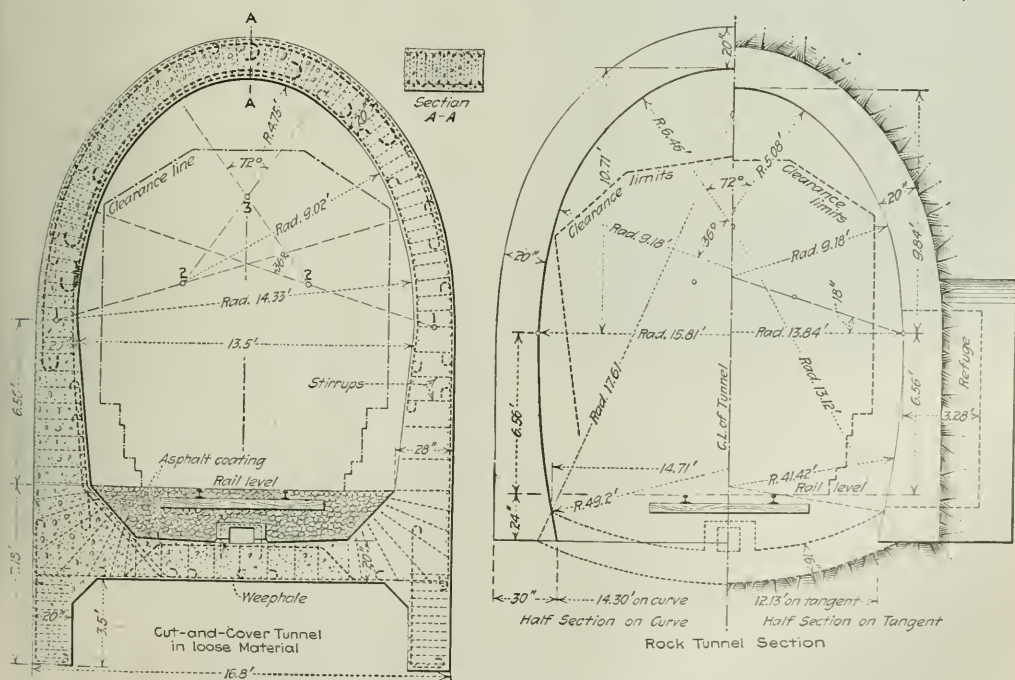 A
A
Section
A-A
20"
R.4.75'
72°
Clearance line
3
Rad. 9.02'
36°
2
2
Rad. 14.33'
1
1
13.5'
6.56'
Stirrups
28"
Asphalt coating
Rail level
7.15'
20"
Weephole
20"
3.5'
Cut-and-Cover Tunnel
in loose Material
16.8'
20"
R.6.46'
R.5.08'
10.71'
72°
Clearance
limits
Clearance
limits
20"
36°
Rad. 9.18'
Rad. 9.18'
9.84'
20"
18"
Rad. 15.81'
Rad. 13.84'
Rad. 17.61'
Rad. 13.12'
C.L. of Tunnel
6.56'
6.56'
Refuge
3.28'
14.71'
R.41.42'
Rail level
R.49.2'
24"
16"
30"
14.30' on curve
12.13' on tangent
Half Section on Curve
Half Section on Tangent
Rock Tunnel Section